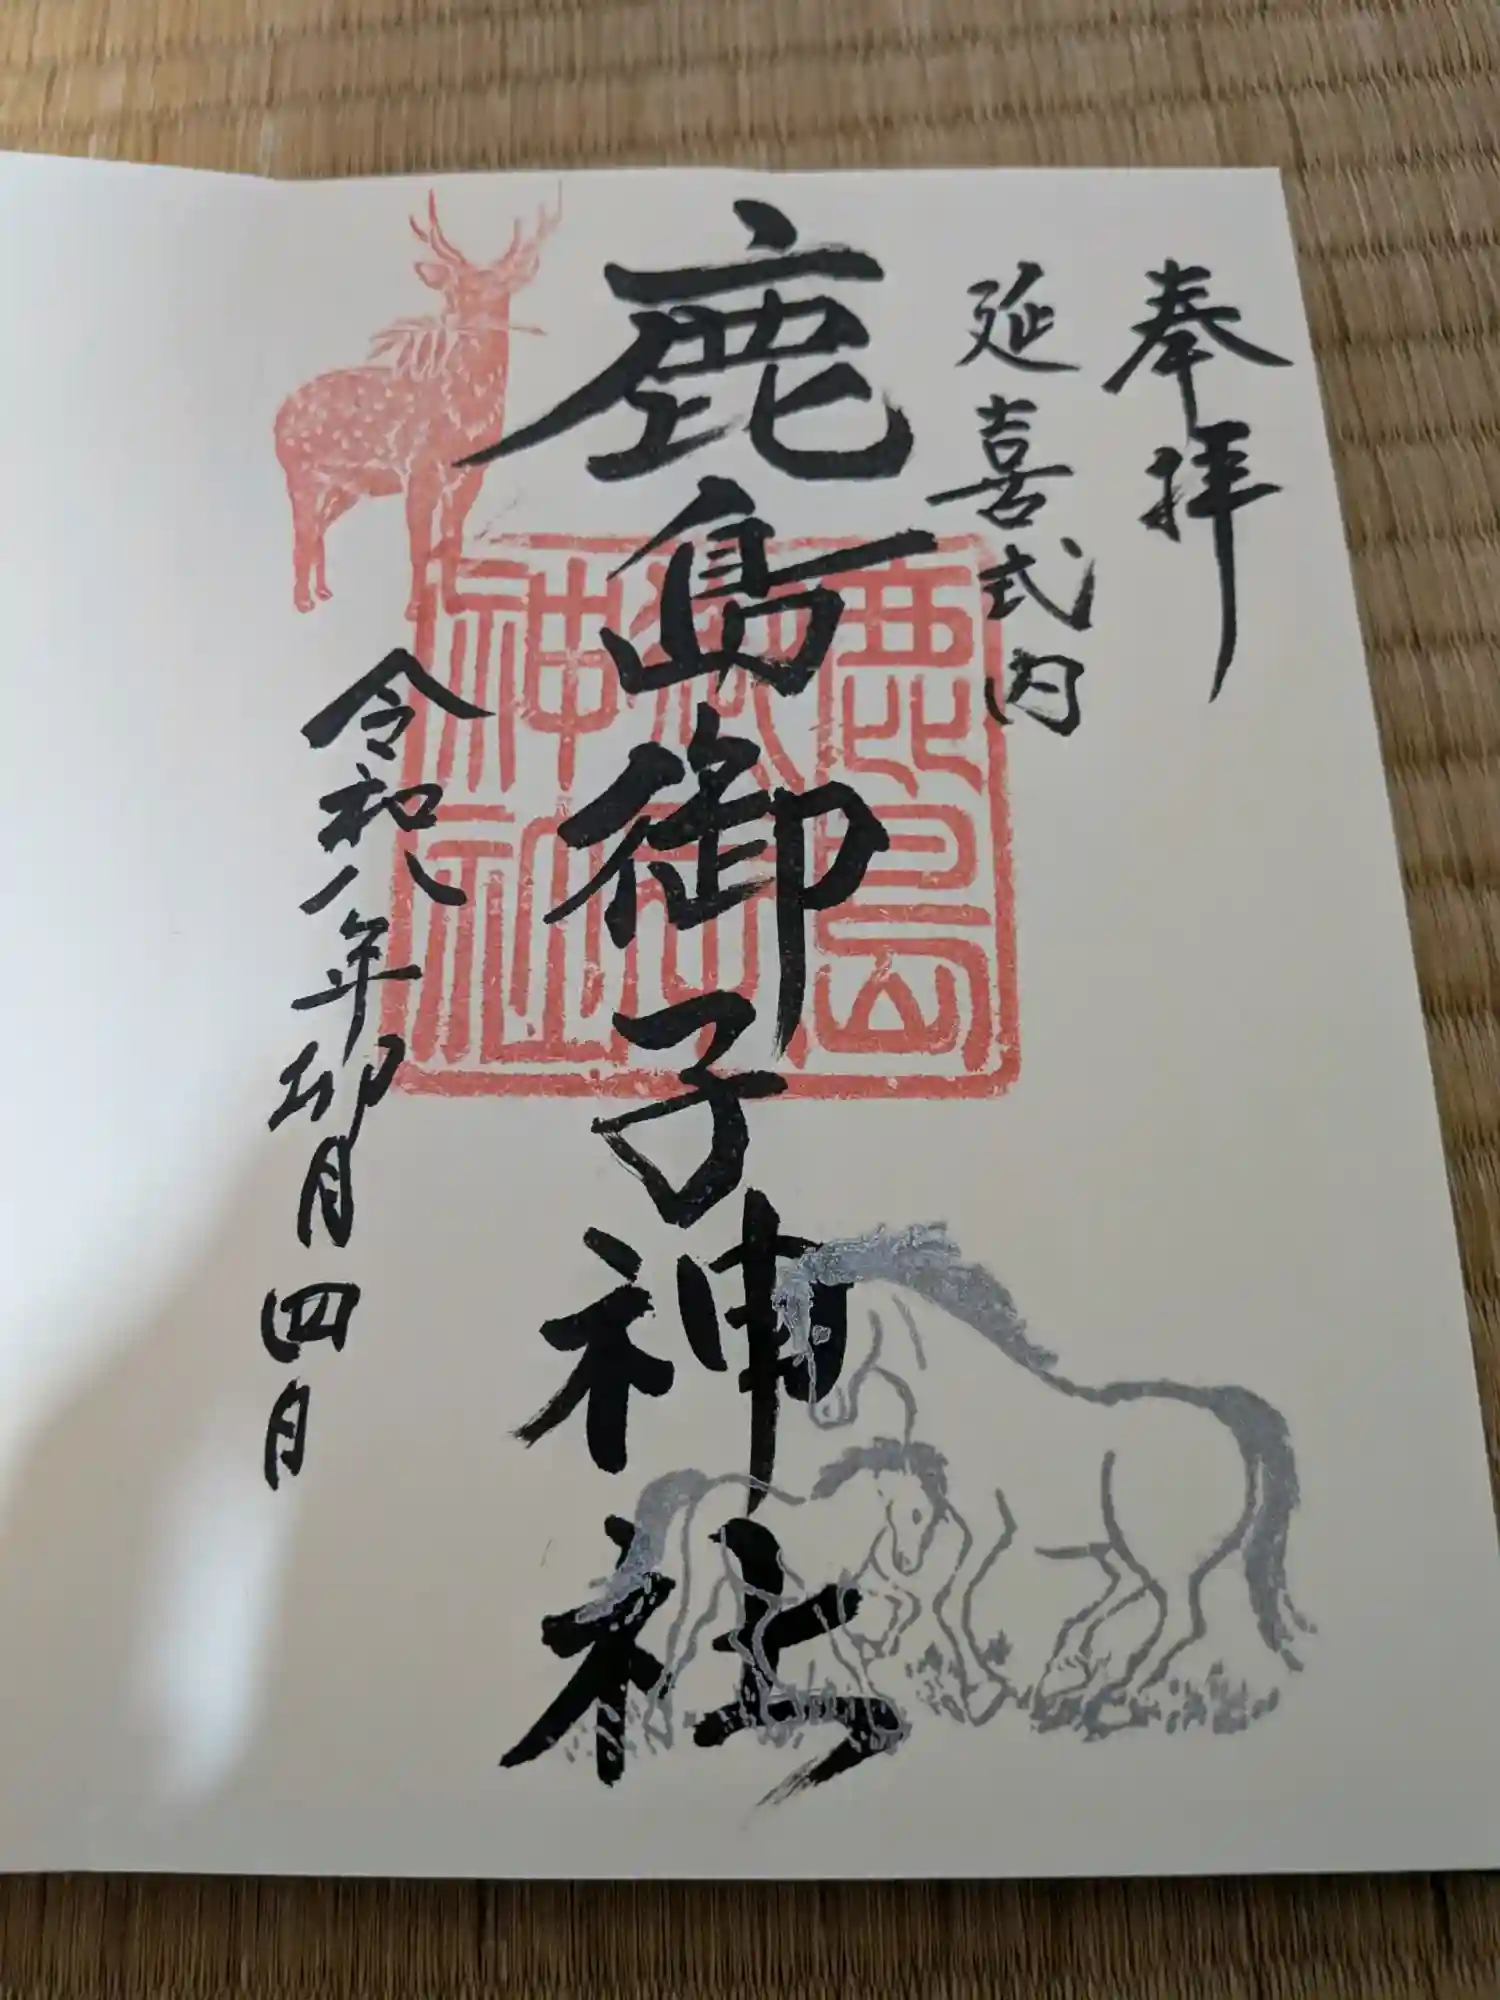 奉拝
延喜式内
鹿島御子神社
令和八年卯月四日
鹿島
御子
神社